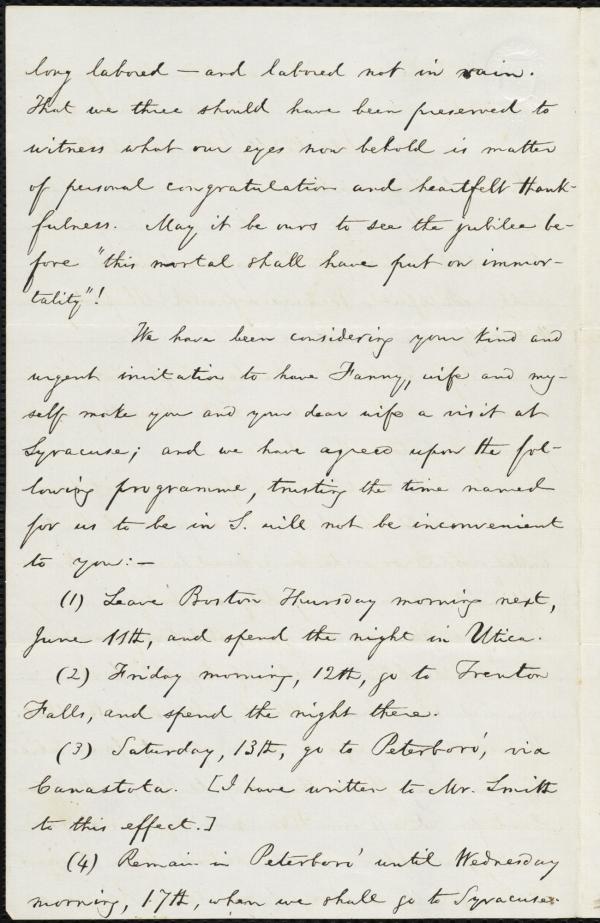 long labored — and labored not in vain.
That we three should have been preserved to
witness what our eyes now behold is matter
of personal congratulation and heartfelt thank-
fulness. May it be ours to see the jubilee be-
fore "this mortal shall have put on immor-
tality"!
We have been considering your kind and
urgent invitation to have Fanny, wife and my-
self make you and your dear wife a visit at
Syracuse; and we have agreed upon the fol-
lowing programme, trusting the time named
for us to be in S. will not be inconvenient
to you:—
(1) Leave Boston Thursday morning next,
June 11th, and spend the night in Utica.
(2) Friday morning, 12th, go to Trenton
Falls, and spend the night there.
(3) Saturday, 13th, go to Peterboro', via
Canastota. [I have written to Mr. Smith
to this effect.]
(4) Remain in Peterboro' until Wednesday
morning, 17th, when we shall go to Syracuse.